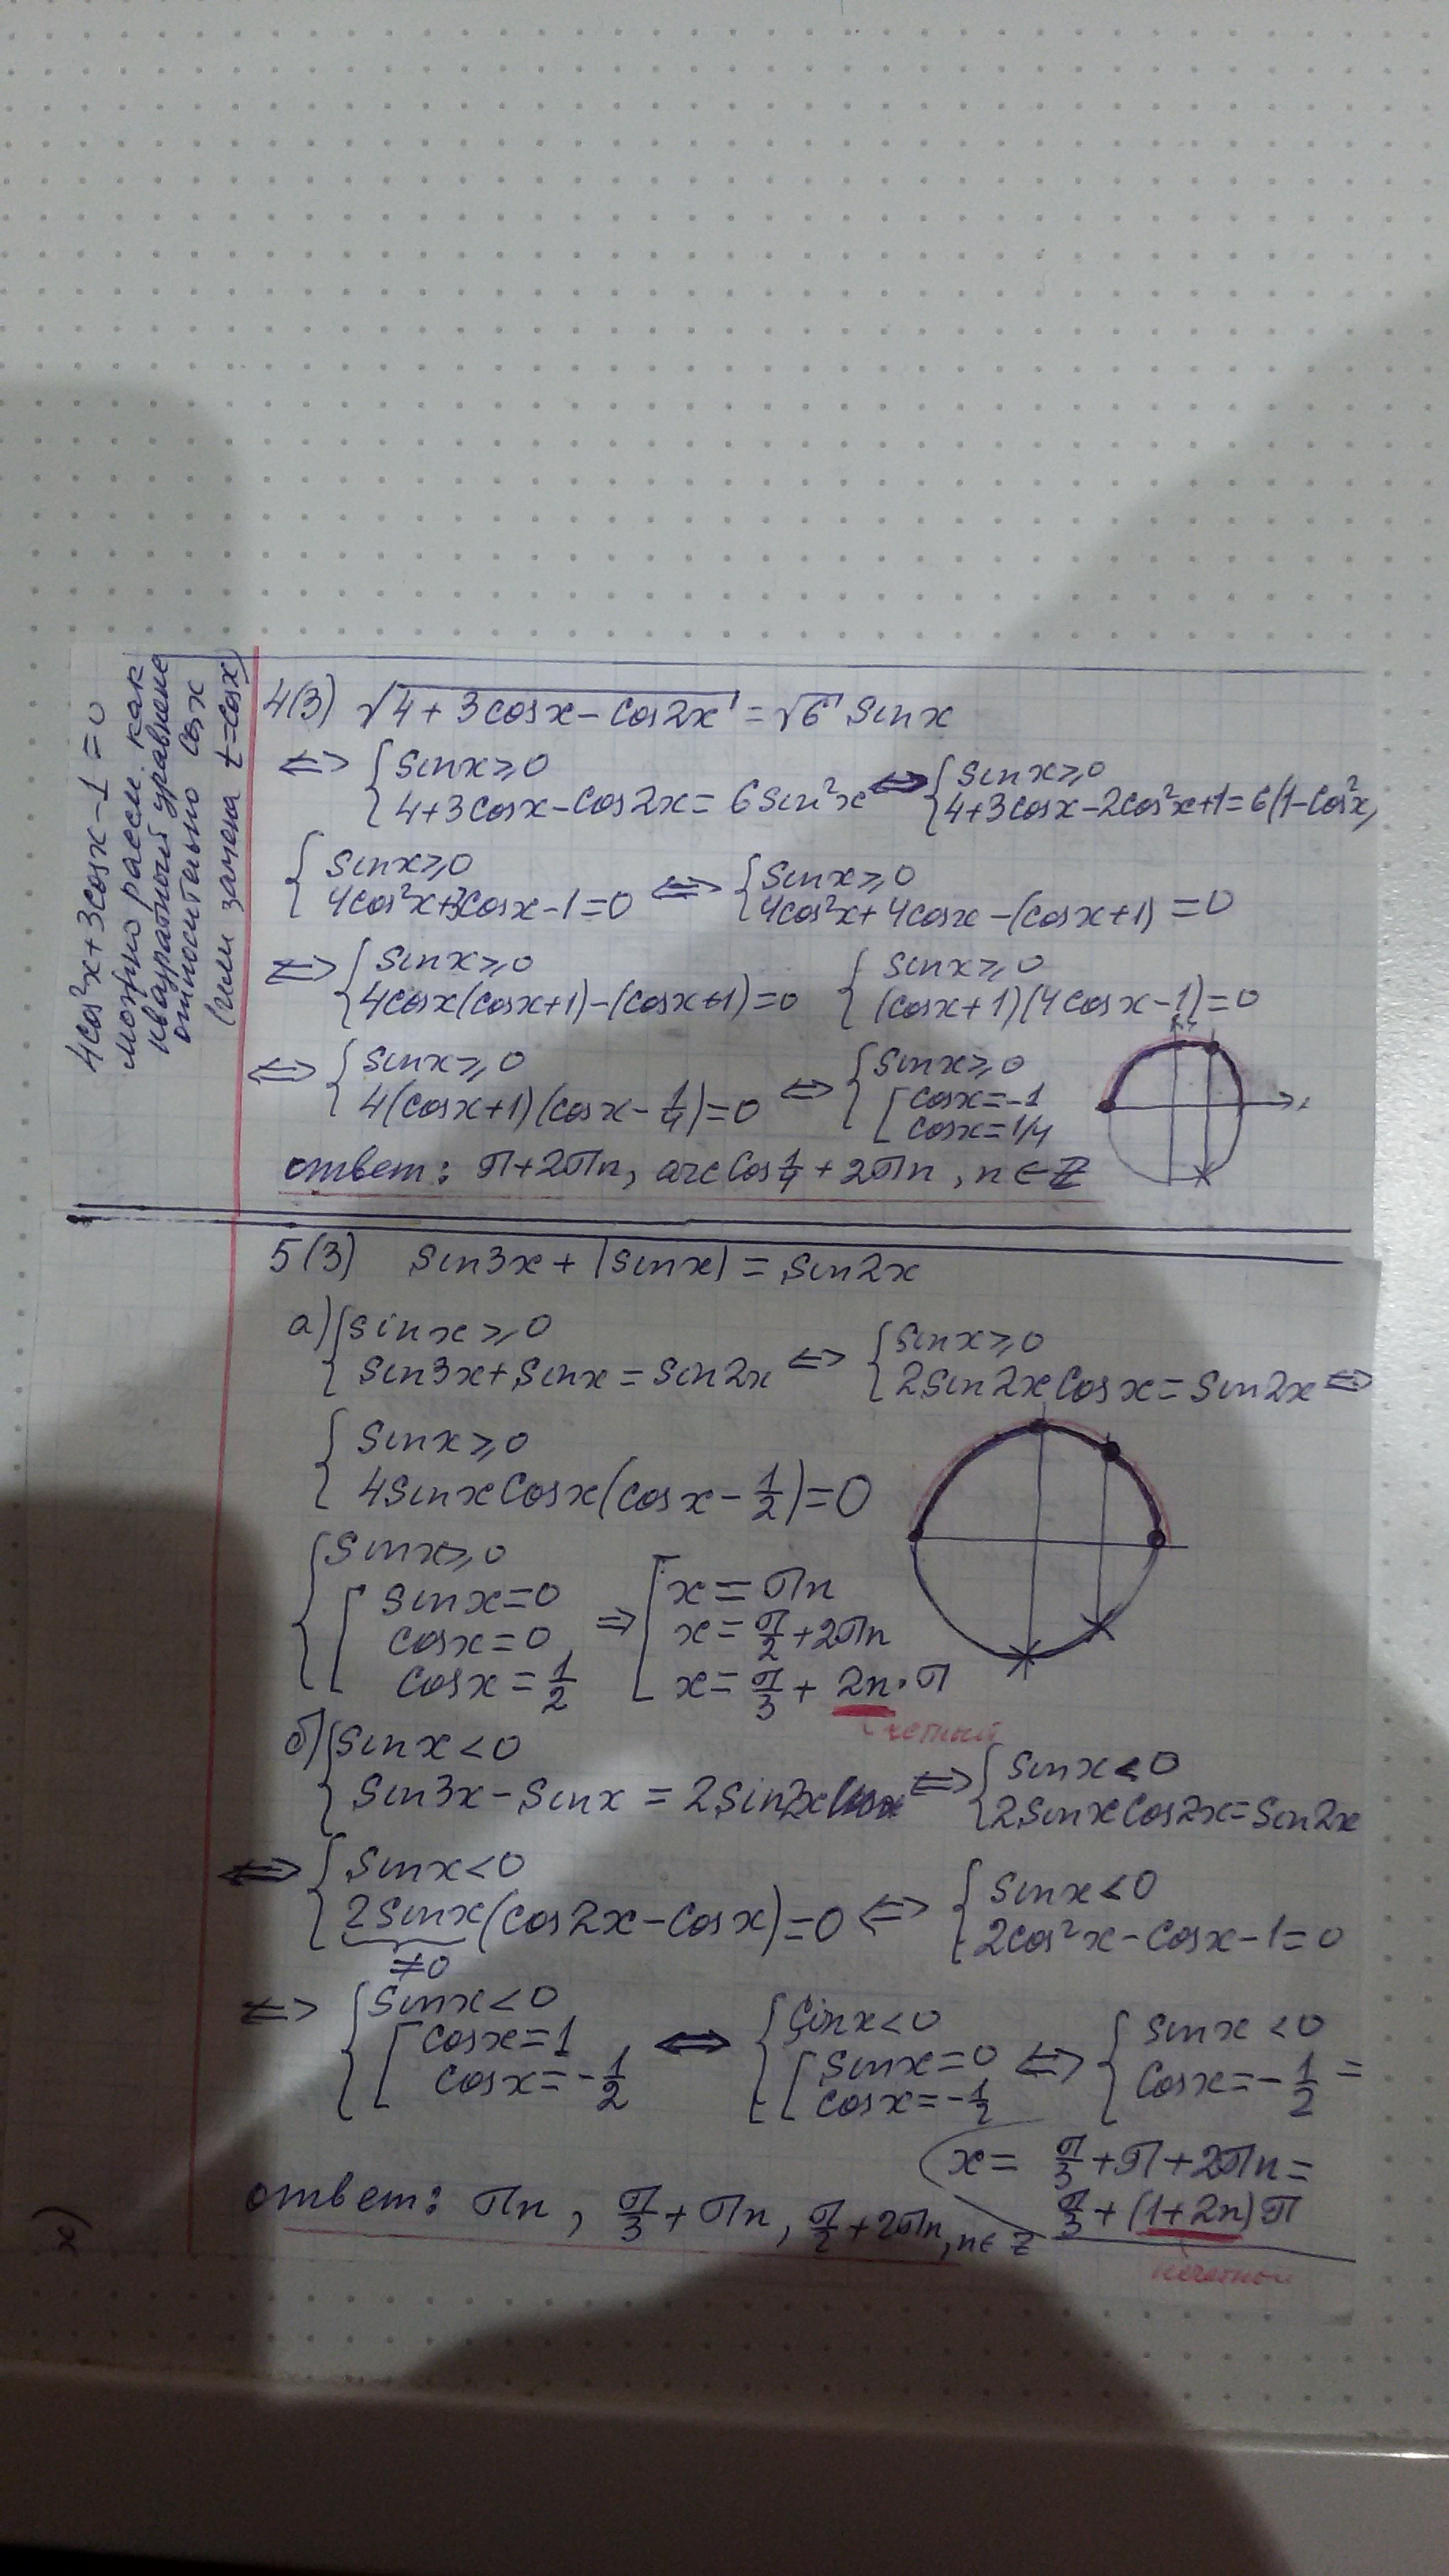 4cos²x+3cosx-1=0
можно рассм. как
квадратный уравнение
относительно cosx
(или замена t=cosx)
4(3) √(4+3cosx-cos2x) = √6 sinx
⇔ { sinx≥0
4+3cosx-cos2x=6sin²x ⇔ { sinx≥0
4+3cosx-2cos²x+1=6(1-cos²x)
{ sinx≥0
4cos²x+3cosx-1=0 ⇔ { sinx≥0
4cos²x+4cosx-(cosx+1)=0
⇔ { sinx≥0
4cosx(cosx+1)-(cosx+1)=0 { sinx≥0
(cosx+1)(4cosx-1)=0
⇔ { sinx≥0
4(cosx+1)(cosx-1/4)=0 ⇔ { sinx≥0
[ cosx=-1
cosx=1/4
ответ: π+2πn, arccos 1/4 + 2πn, n∈Z
5(3) sin3x+|sinx|=sin2x
а) { sinx≥0
sin3x+sinx=sin2x ⇔ { sinx≥0
2sin2xcosx=sin2x ⇔
{ sinx≥0
4sinxcosx(cosx-1/2)=0
{ sinx≥0
[ sinx=0
cosx=0
cosx=1/2 ⇒ [ x=πn
x=π/2+2πn
x=π/3+2n·π
четный
б) { sinx<0
sin3x-sinx=2sin2x ⇔ { sinx<0
2sinxcos2x=sin2x
⇔ { sinx<0
2sinx(cos2x-cosx)=0 ⇔ { sinx<0
2cos²x-cosx-1=0
≠0
⇔ { sinx<0
[ cosx=1
cosx=-1/2 ⇔ { sinx<0
[ sinx=0
cosx=-1/2 ⇔ { sinx<0
cosx=-1/2 =
x= π/3+π+2πn=
π/3+(1+2n)π
нечетное
ответ: πn, π/3+πn, π/2+2πn, n∈Z
x)